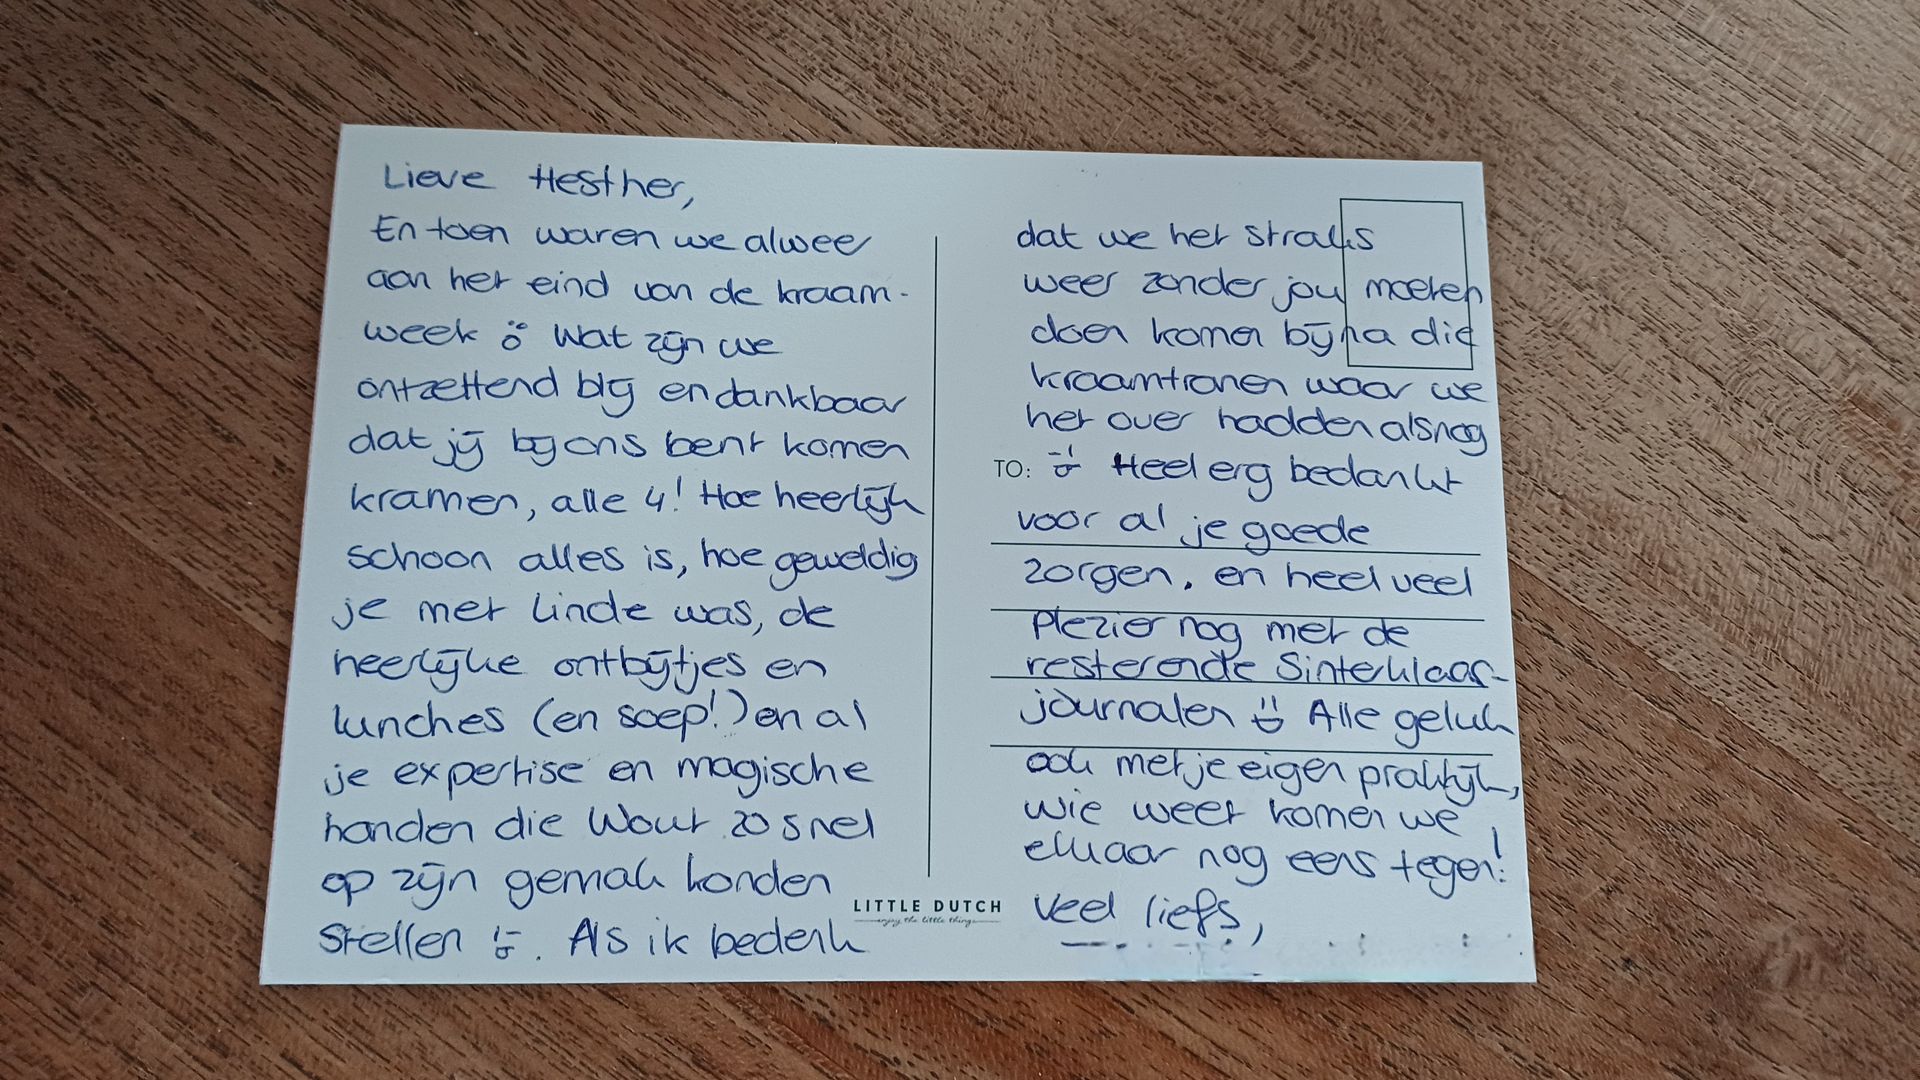 Lieve Hesther,
En toen waren we alweer
aan het eind van de kraam-
week Wat zijn we
ontzettend blij en dankbaar
dat jij bij ons bent komen
kramen, alle 4! Hoe heerlijk
schoon alles is, hoe geweldig
je met Linde was, de
heerlijke ontbijtjes en
lunches (en soep!) en al
je expertise en magische
handen die Wout zo snel
op zijn gemak konden
stellen. Als ik bedenk
dat we het straks
weer zonder jou moeten
doen komen bijna die
kraamtranen waar we
het over hadden alsnog
TO: Heel erg bedankt
voor al je goede
zorgen, en heel veel
plezier nog met de
resterende Sinterklaas-
journalen Alle geluk
ook met je eigen praktijk,
wie weet komen we
elkaar nog eens tegen!
Veel liefs,
LITTLE DUTCH
enjoy the little things